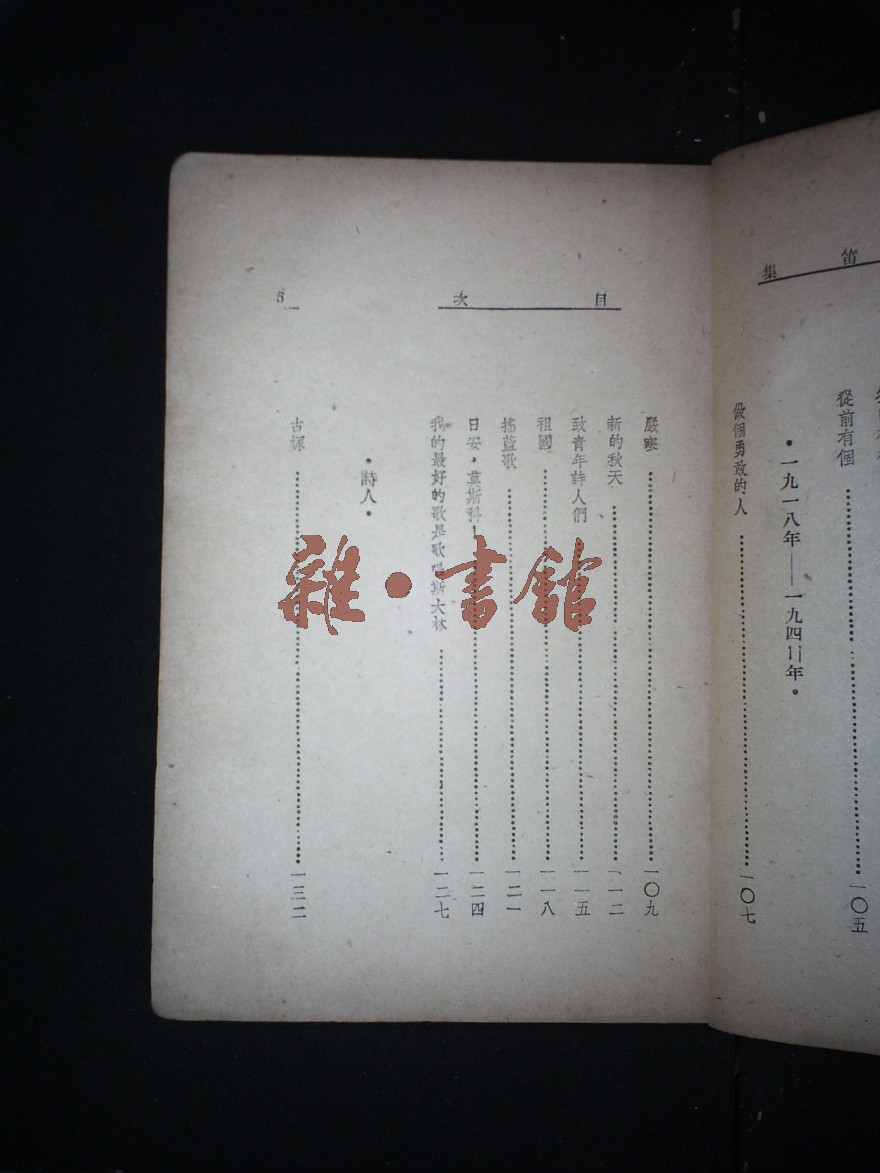 笛集
從前有個……一〇五
•一九一八年——一九四二年•
做個勇敢的人……一〇七
目次
5
嚴寒……一〇九
新的秋天……一一二
致青年詩人們……一一五
祖國……一一八
搖藍歌……一二一
日安，莫斯科！……一二四
我的最好的歌是歌唱斯大林……一二七
•詩人•
古塚……一三二
雜•書館